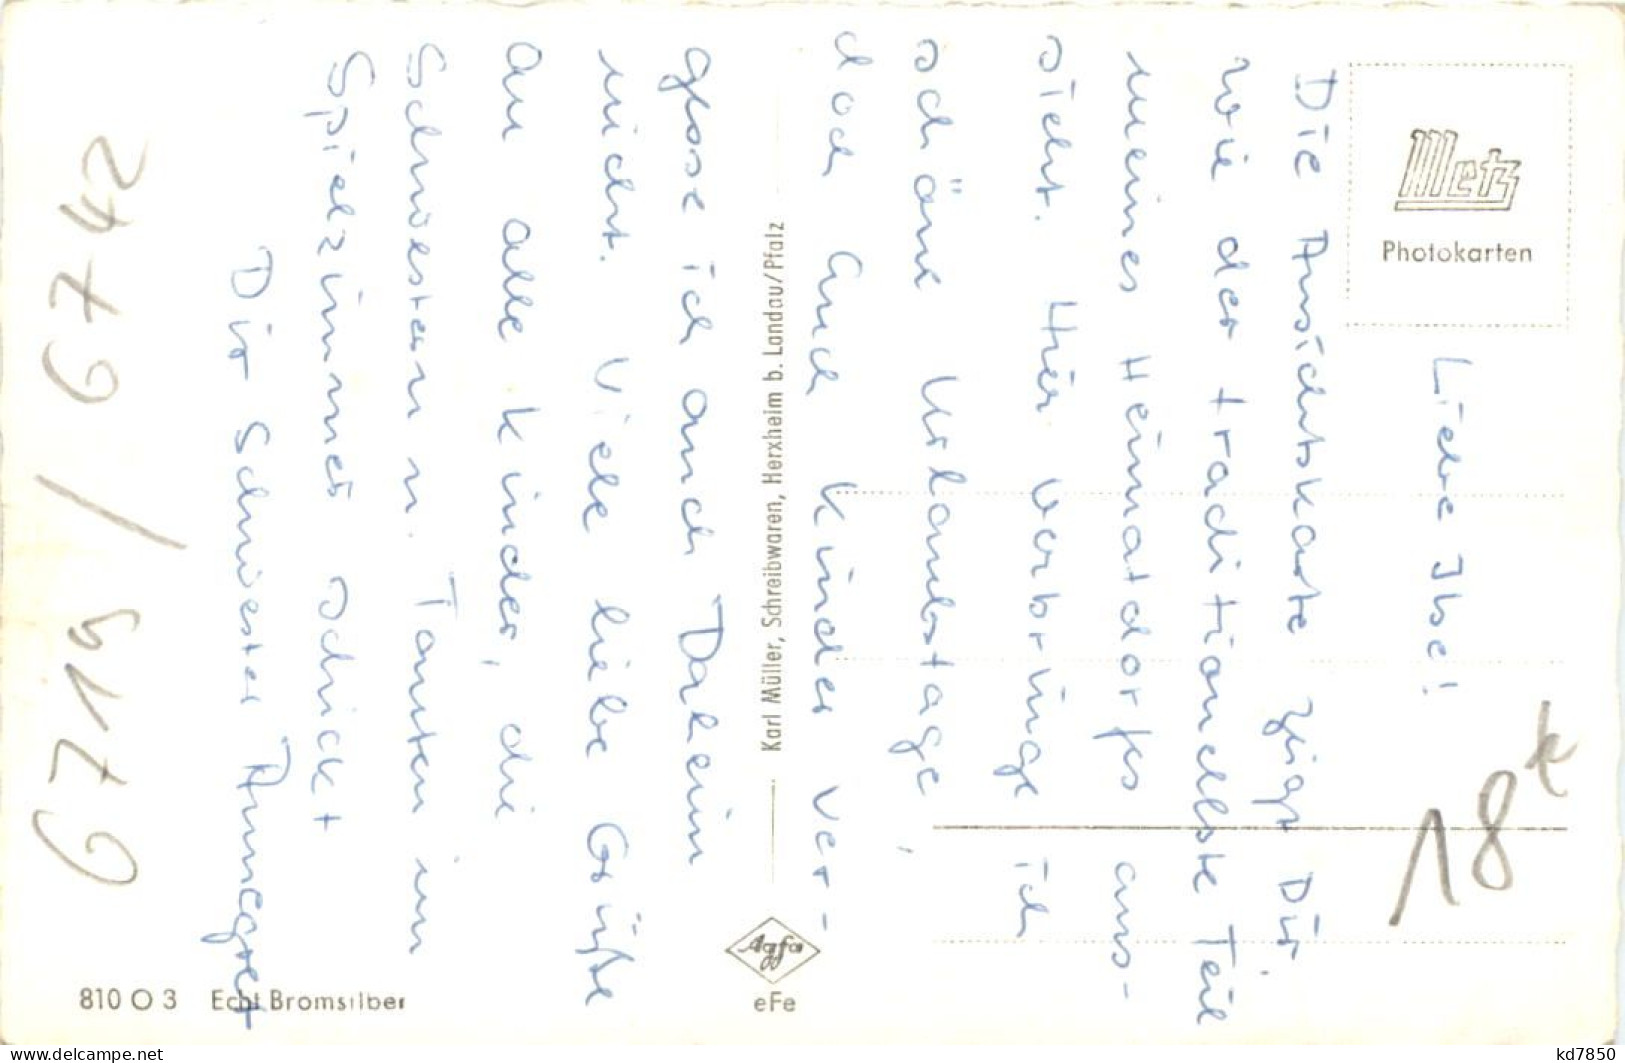 Liebe Ilse!
Die Ansichtskarte zeigt Dir,
wie der traditionellste Teil
meines Heimatdorfes aus-
sieht. Hier verbringe ich
schöne Urlaubstage,
doch auch Kinder ver-
gesse ich auch Daheim
nicht. Viele liebe Grüße
an alle Kinder, die
Schwestern u. Tanten im
Spielzimmer schickt
Dir Schwester Annegret
6719/6742
18€
Metz
Photokarten
Karl Müller, Schreibwaren, Herxheim b. Landau/Pfalz
Agfa
eFe
810 O 3 Echt Bromsilber
www.delcampe.net
kd7850